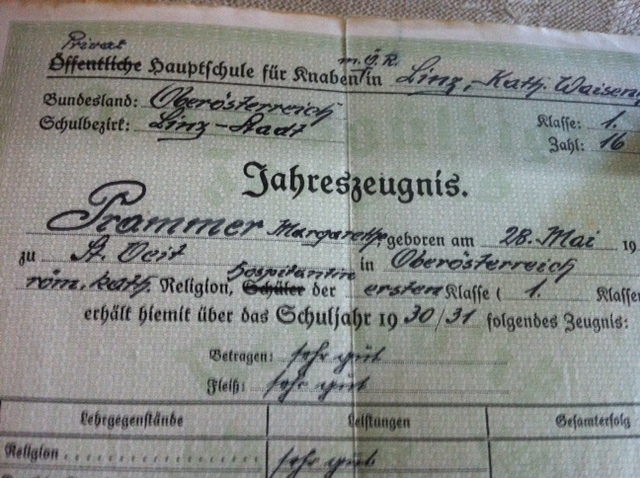 Privat m. Ö. R.
Öffentliche Hauptschule für Knaben in Linz, Kath. Waisen
Bundesland: Oberösterreich
Schulbezirk: Linz-Stadt
Klasse: 1.
Zahl: 16
Jahreszeugnis.
Prammer Margarethe geboren am 28. Mai 19
zu St. Veit in Oberösterreich
Hospitantin
röm. kath. Religion, Schüler der ersten Klasse ( 1. Klasse
erhält hiemit über das Schuljahr 1930/31 folgendes Zeugnis:
Betragen: sehr gut
Fleiß: sehr gut
Lehrgegenstände Leistungen Gesamterfolg
Religion sehr gut